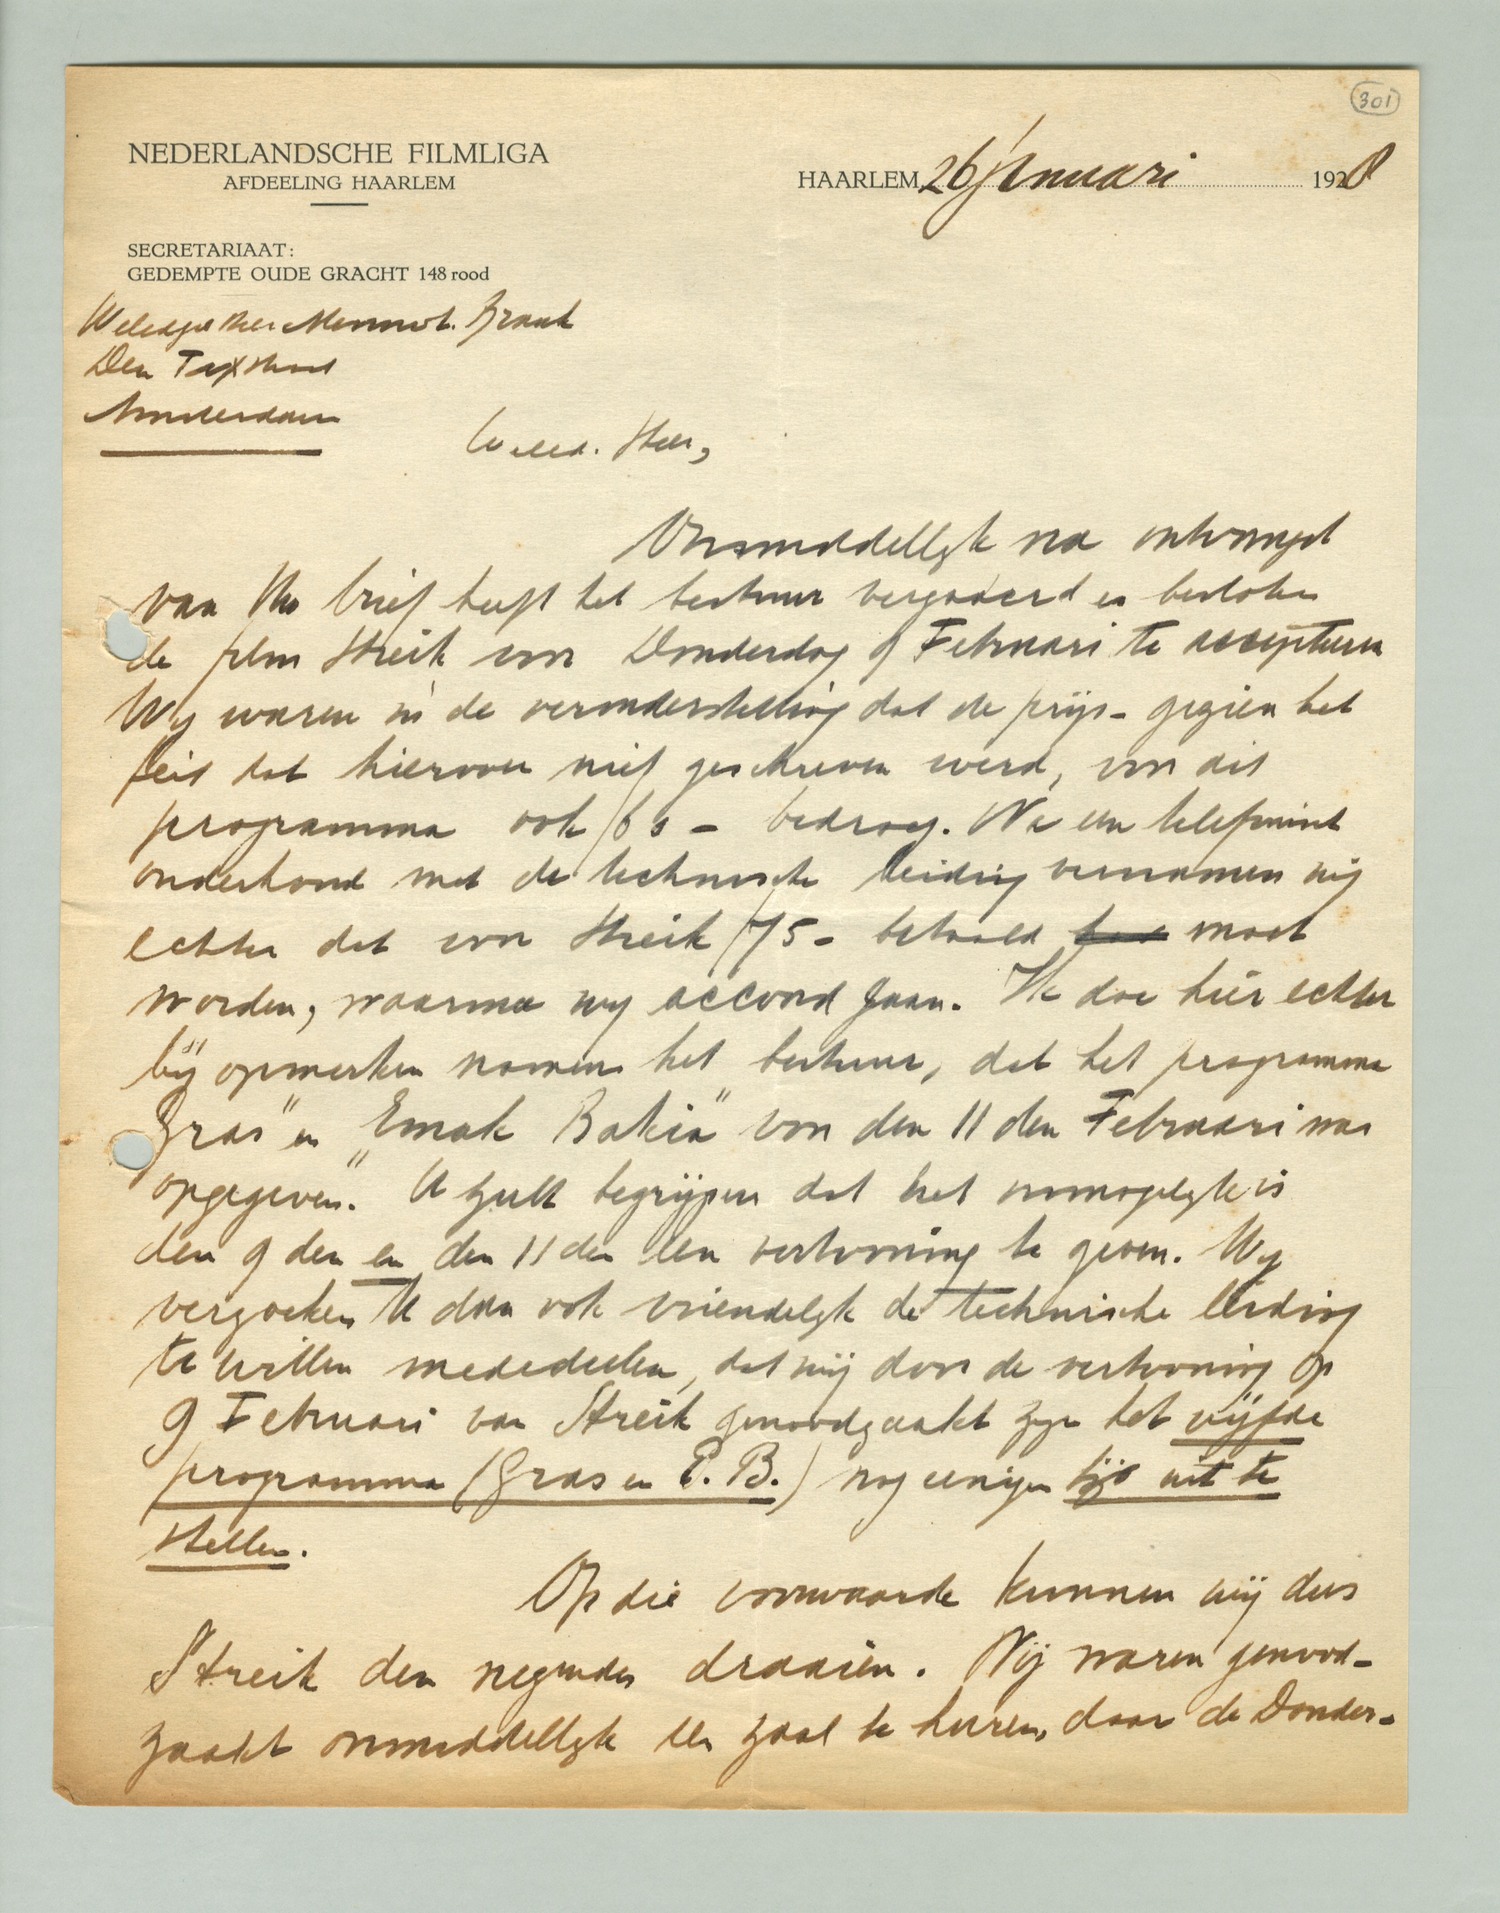 301
NEDERLANDSCHE FILMLIGA
AFDEELING HAARLEM
HAARLEM 26 Januari 1928
SECRETARIAAT:
GEDEMPTE OUDE GRACHT 148 rood
Weledgel Heer Menno t. Braak
Den Texstraat
Amsterdam
Weled. Heer,
Onmiddellyk na ontvangst
van Uw brief heeft het bestuur vergaderd en besloten
de film Streik voor Donderdag 9 Februari te accepteeren
Wy waren in de veronderstelling dat de prijs - gezien het
feit dat hierover niet geschreven werd, voor dit
programma ook f 60 - bedroeg. Na een telefonisch
onderhoud met de technische leiding vernamen wij
echter dat voor Streik f 75 - betaald moet
worden, waarmee wy accoord gaan. Ik doe hier echter
bij opmerken namens het bestuur, dat het programma
Gras" en "Emak Bakia" voor den 11 den Februari was
opgegeven. U zult begrijpen dat het onmogelyk is
den 9 den en den 11 den een vertooning te geven. Wy
verzoeken U dan ook vriendelyk de technische leiding
te willen mededeelen, dat wij door de vertooning op
9 Februari van Streik genoodzaakt zyn het vijfde
programma (Gras en E. B.) nog eenigen tijd uit te
stellen.
Op die voorwaarde kunnen wij dus
Streik den negenden draaien. Wij waren genood-
zaakt onmiddellyk een zaal te huren, daar de Donder-